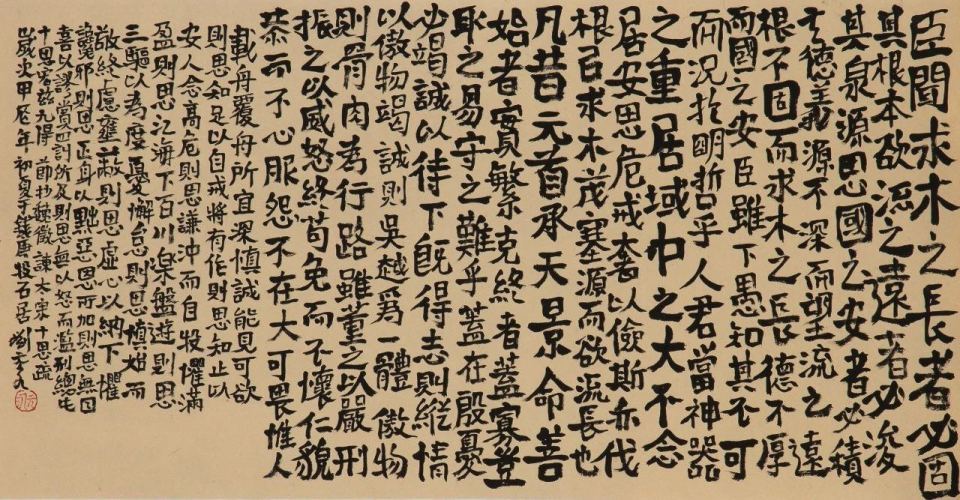 臣聞求木之長者必固
其根本欲流之遠者必浚
其泉源思國之安者必積
其德義源不深而望流之遠
根不固而求木之長德不厚
而國之安臣雖下愚知其不可
而況於明哲乎人君當神器
之重居域中之大不念
居安思危戒奢以儉斯亦伐
根以求木茂塞源而欲流長也
凡昔元首承天景命善
始者實繁克終者蓋寡豈
取之易守之難乎蓋在殷憂
必竭誠以待下既得志則縱情
以傲物竭誠則吳越為一體傲物
則骨肉為行路雖董之以嚴刑
振之以威怒終苟免而不懷仁貌
恭而不心服怨不在大可畏惟人
載舟覆舟所宜深慎誠能見可欲
則思知足以自戒將有作則思知止以
安人念高危則思謙沖而自牧懼滿
盈則思江海下百川樂盤遊則思
三驅以為度憂懈怠則思慎始而
敬終慮壅蔽則思虛心以納下懼
讒邪則思正身以黜惡恩所加則思無因
喜以謬賞罰所及則思無以怒而濫刑總此
十思宏茲九得 節抄魏徵諫太宗十思疏
歲次甲辰年初夏 投石居 劉